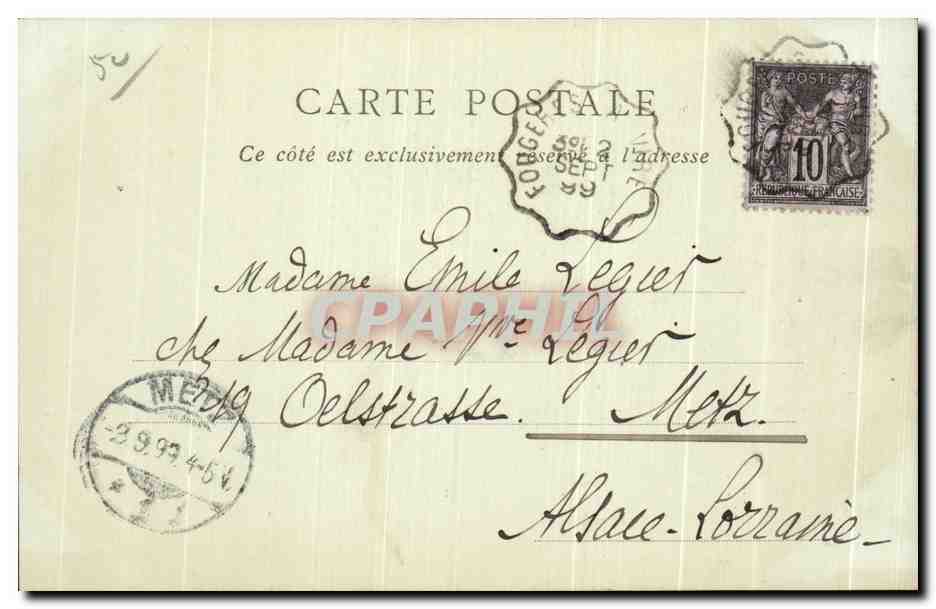 50/
CARTE POSTALE
Ce côté est exclusivement réservé à l'adresse
POSTE
10
REPUBLIQUE FRANÇAISE
FOUGERES VIRE
2
SEPT
99
Madame Emile Légier
CPAPHIL
chez Madame Vve Légier
Oelstrasse. Metz.
METZ
9.99. 4-5 V.
Alsace-Lorraine-